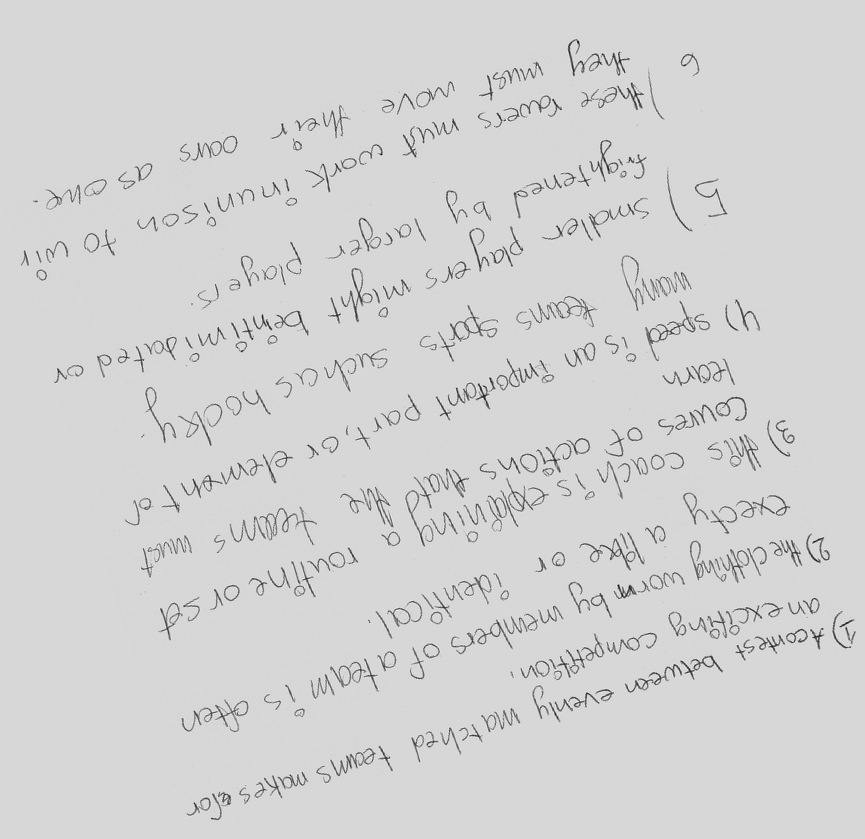 1) A contest between evenly matched teams makes for
an exciting competition.
2) the clothing worn by members of a team is often
exectly a like or identical.
3) this coach is explaining a routine or set
coures of actions thatd the teams must
learn
4) speed is an important part, or element of
many teams sports such as hocky.
5) smaller players might be intimidated or
frightened by larger players.
6) these rowers must work in unison to win
they must move their oars as one.